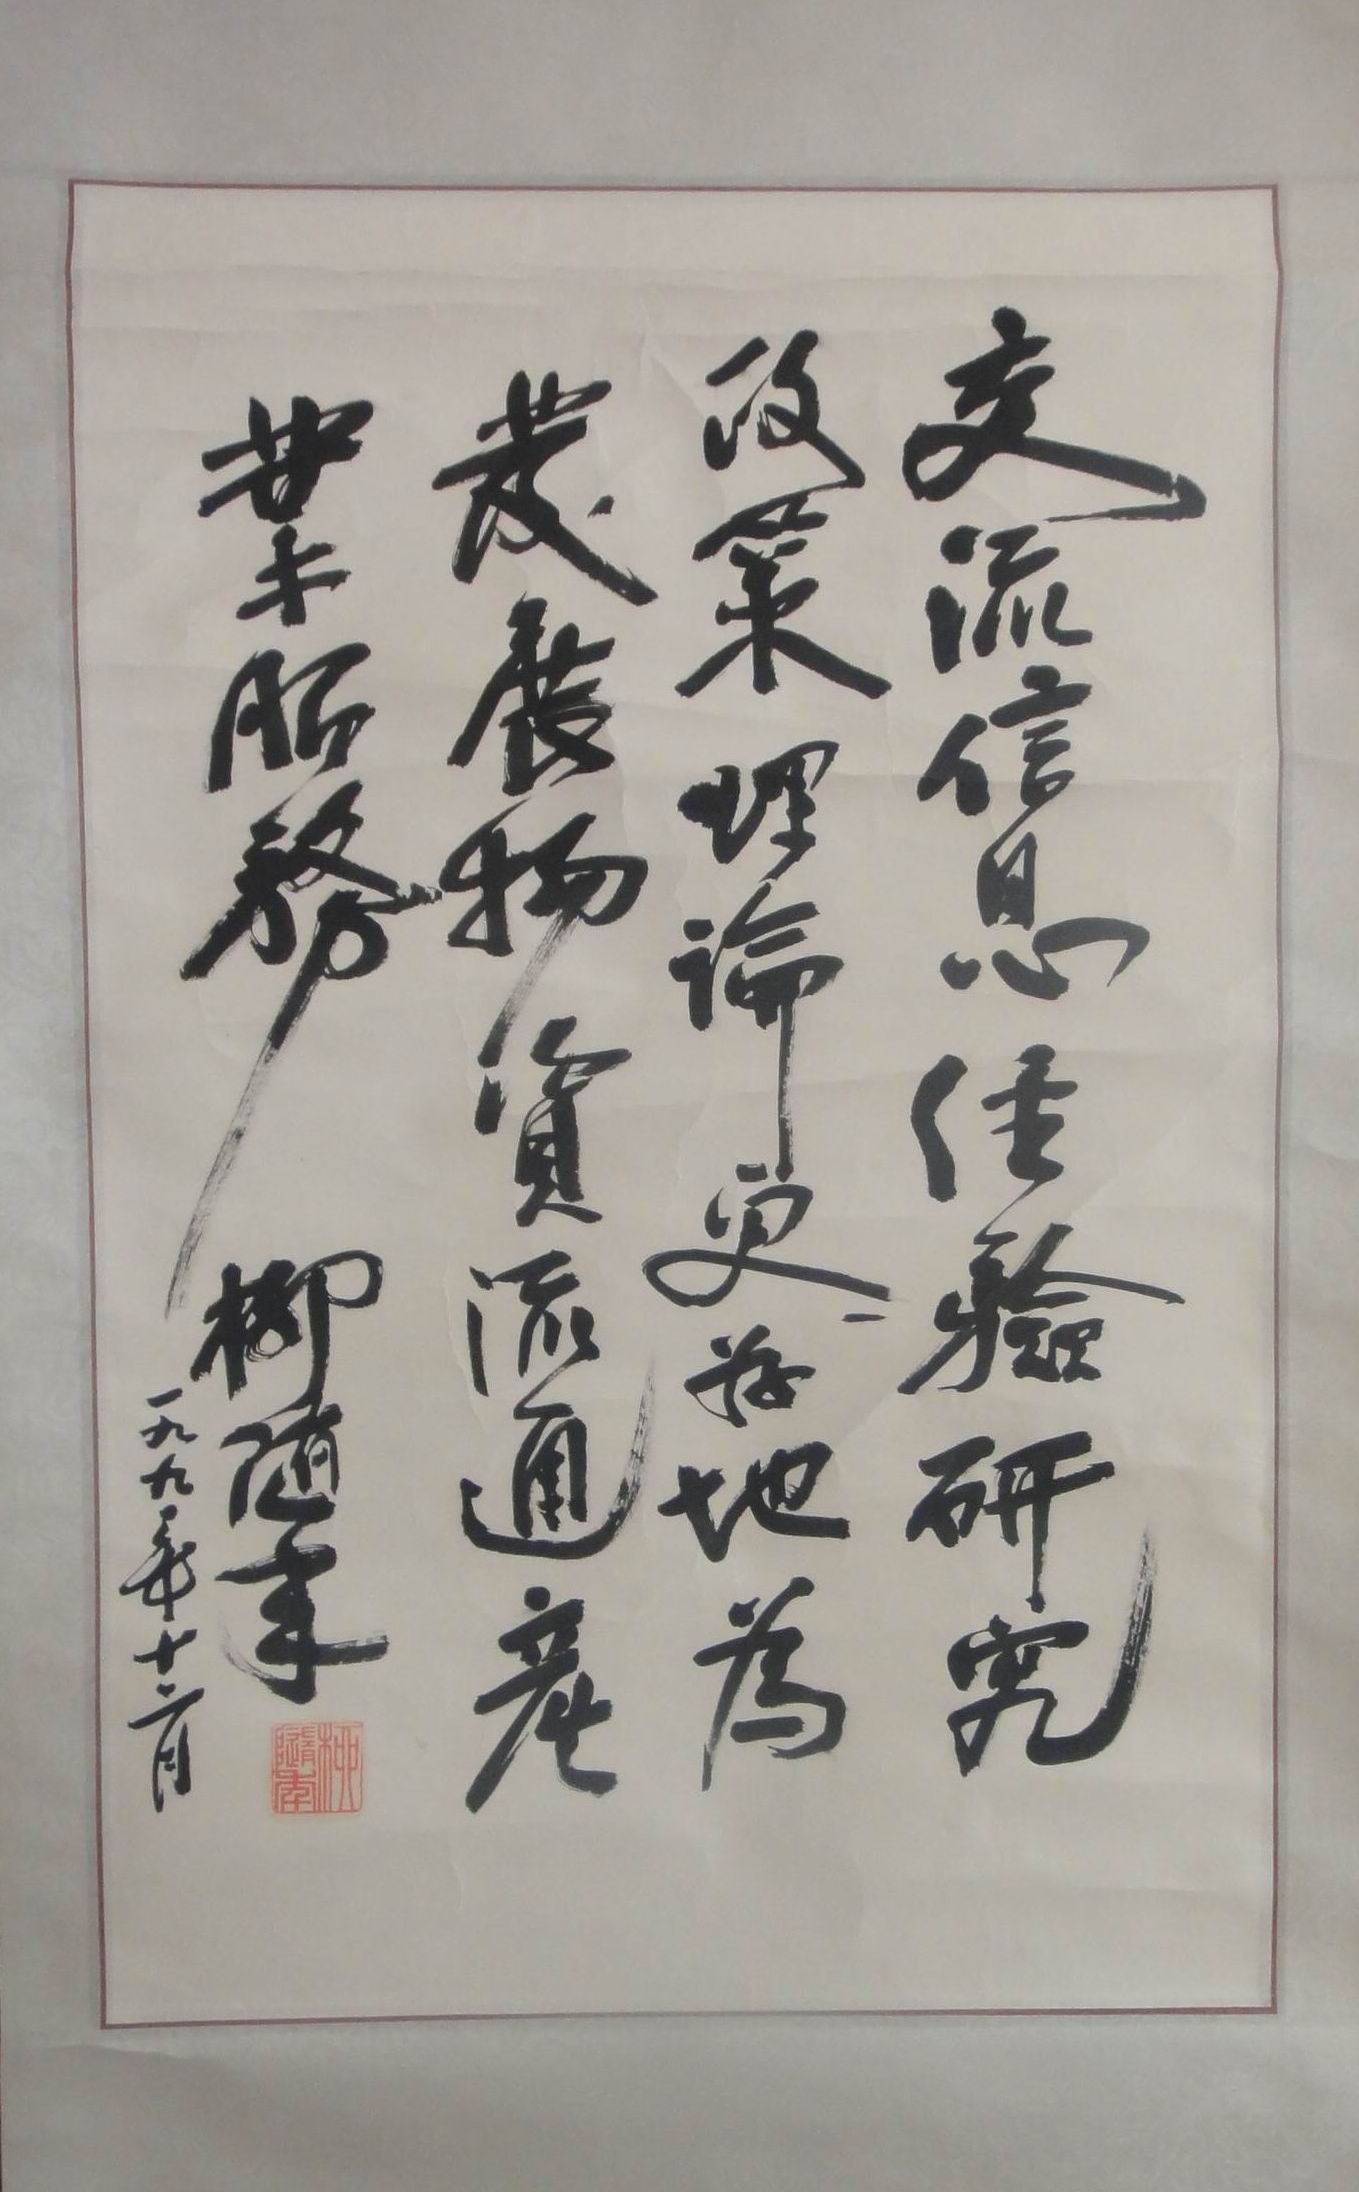 交流信息經驗研究
政策理論更好地為
發展物資流通產
業服務 柳隨年
一九九一年十二月
柳隨年